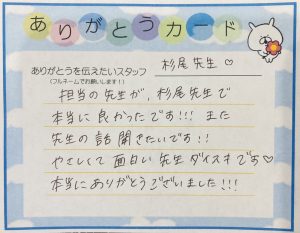 ありがとうカード
ありがとうを伝えたいスタッフ
(フルネームでお願いします!)
杉尾先生♡
担当の先生が、杉尾先生で
本当に良かったです!!! また
先生の話聞きたいです!!
やさしくて面白い先生ダイスキです♡
本当にありがとうございました!!!